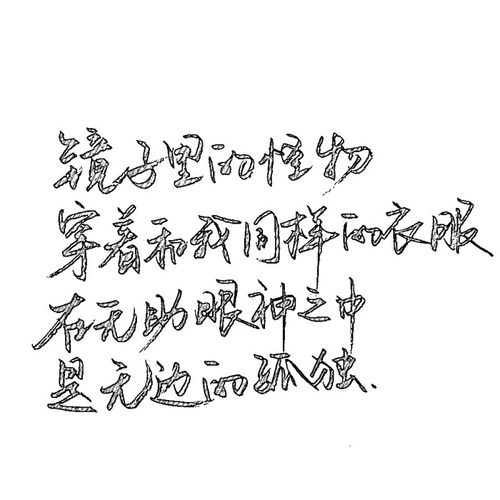 镜子里的怪物
穿着和我同样的衣服
在无助眼神之中
是无边的孤独.